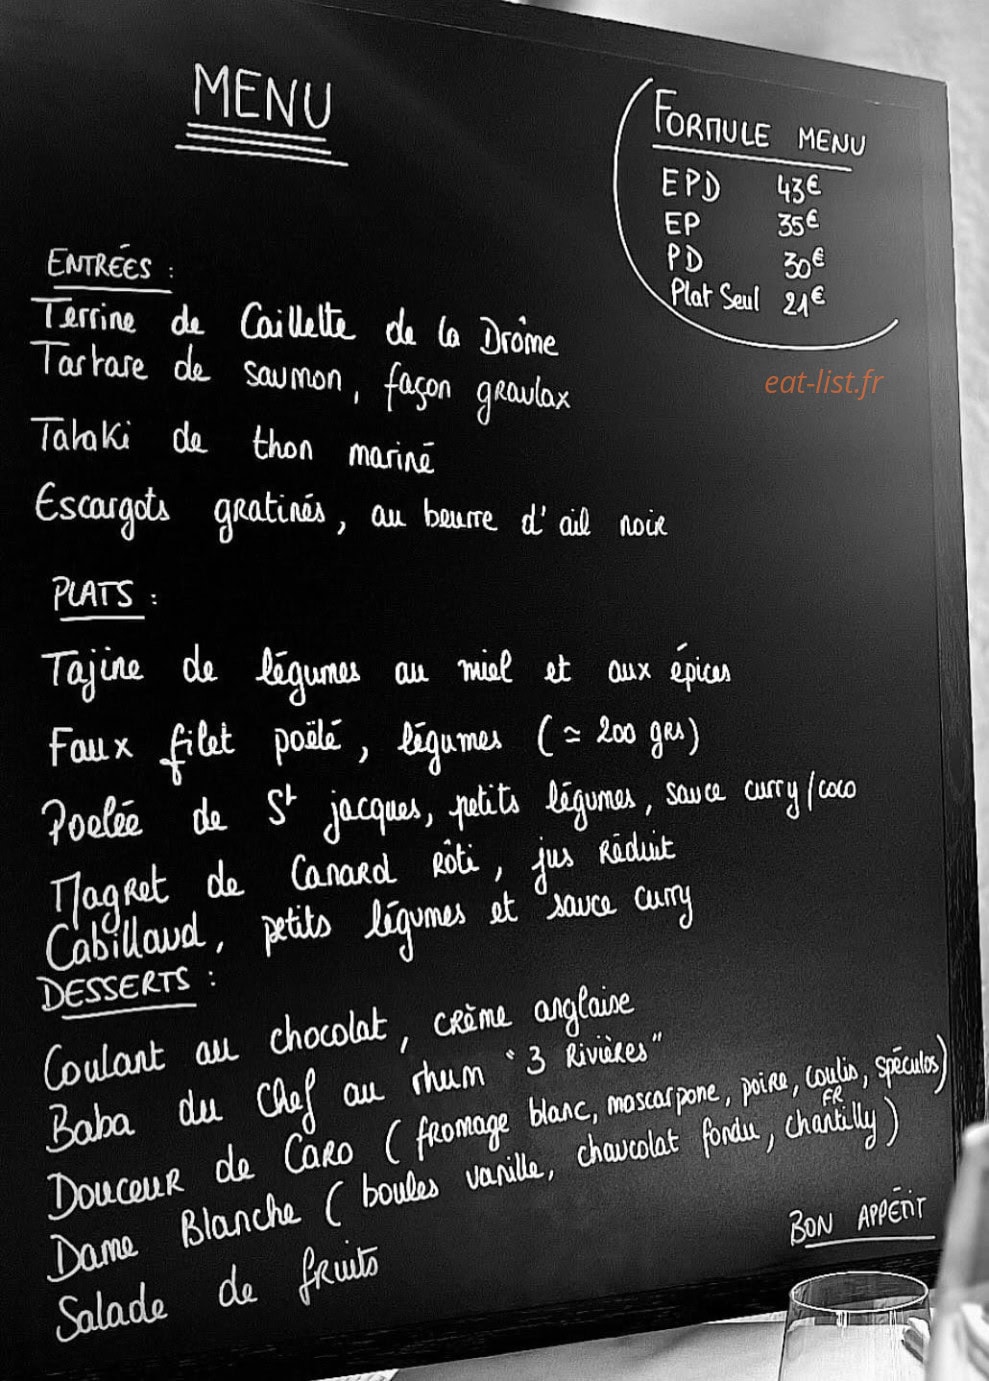 MENU
FORMULE MENU
EPD 43€
EP 35€
PD 30€
Plat Seul 21€
eat-list.fr
ENTRÉES :
Terrine de Caillette de la Drôme
Tartare de saumon, façon gravlax
Tataki de thon mariné
Escargots gratinés, au beurre d'ail noir
PLATS :
Tajine de légumes au miel et aux épices
Faux filet poêlé, légumes (≃ 200 grs)
Poelée de St jacques, petits légumes, sauce curry/coco
Magret de Canard rôti, jus réduit
Cabillaud, petits légumes et sauce curry
DESSERTS :
Coulant au chocolat, crème anglaise
Baba du Chef au rhum "3 Rivières"
Douceur de Caro (fromage blanc, mascarpone, poire, coulis FR, spéculos)
Dame Blanche (boules vanille, chaucolat fondu, chantilly)
Salade de fruits
BON APPÉTIT